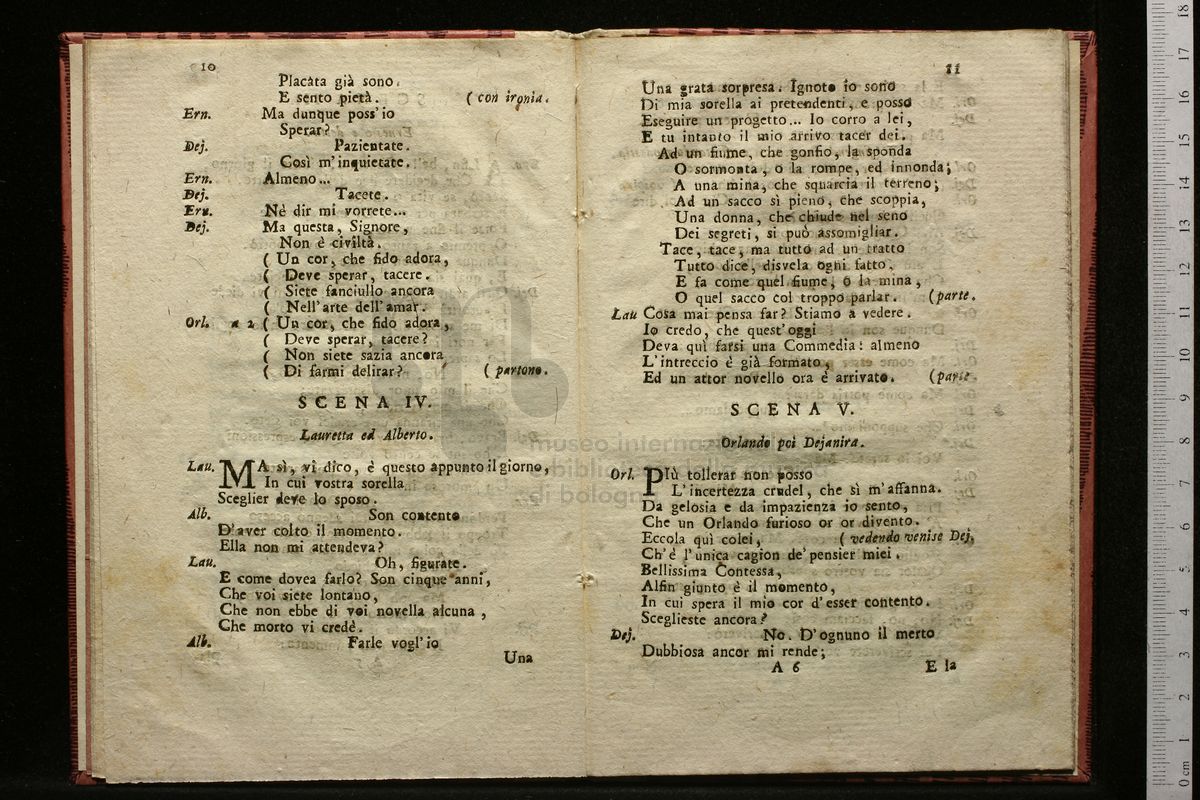 10
Placata già sono.
E sento pietà. ( con ironia.
Ern. Ma dunque poss'io
Sperar?
Dej. Pazientate.
Così m'inquietate.
Ern. Almeno...
Dej. Tacete.
Ern. Nè dir mi vorrete...
Dej. Ma questa, Signore,
Non è civiltà.
( Un cor, che fido adora,
( Deve sperar, tacere.
( Siete fanciullo ancora
( Nell'arte dell'amar.
Orl. a 2 ( Un cor, che fido adora,
( Deve sperar, tacere?
( Non siete sazia ancora
( Di farmi delirar? ( partono.
SCENA IV.
Lauretta ed Alberto.
Lau. MA sì, vi dico, è questo appunto il giorno,
In cui vostra sorella
Sceglier deve lo sposo.
Alb. Son contento
D'aver colto il momento.
Ella non mi attendeva?
Lau. Oh, figurate.
E come dovea farlo? Son cinque anni,
Che voi siete lontano,
Che non ebbe di voi novella alcuna,
Che morto vi credè.
Alb. Farle vogl'io
Una
11
Una grata sorpresa. Ignoto io sono
Di mia sorella ai pretendenti, e posso
Eseguire un progetto... Io corro a lei,
E tu intanto il mio arrivo tacer dei.
Ad un fiume, che gonfio, la sponda
O sormonta, o la rompe, ed innonda;
A una mina, che squarcia il terreno;
Ad un sacco sì pieno, che scoppia,
Una donna, che chiude nel seno
Dei segreti, si può assomigliar.
Tace, tace, ma tutto ad un tratto
Tutto dice, disvela ogni fatto,
E fa come quel fiume, o la mina,
O quel sacco col troppo parlar. (parte.
Lau Cosa mai pensa far? Stiamo a vedere.
Io credo, che quest'oggi
Deva quì farsi una Commedia: almeno
L'intreccio è già formato,
Ed un attor novello ora è arrivato. (parte.
SCENA V.
Orlando poi Dejanira.
Orl. PIù tollerar non posso
L'incertezza crudel, che sì m'affanna.
Da gelosia e da impazienza io sento,
Che un Orlando furioso or or divento.
Eccola quì colei, ( vedendo venire Dej.
Ch'è l'unica cagion de'pensier miei.
Bellissima Contessa,
Alfin giunto è il momento,
In cui spera il mio cor d'esser contento.
Sceglieste ancora?
Dej. No. D'ognuno il merto
Dubbiosa ancor mi rende;
A 6 E la
museo interna
bibliot
di bologn
0 cm 1 2 3 4 5 6 7 8 9 10 11 12 13 14 15 16 17 18